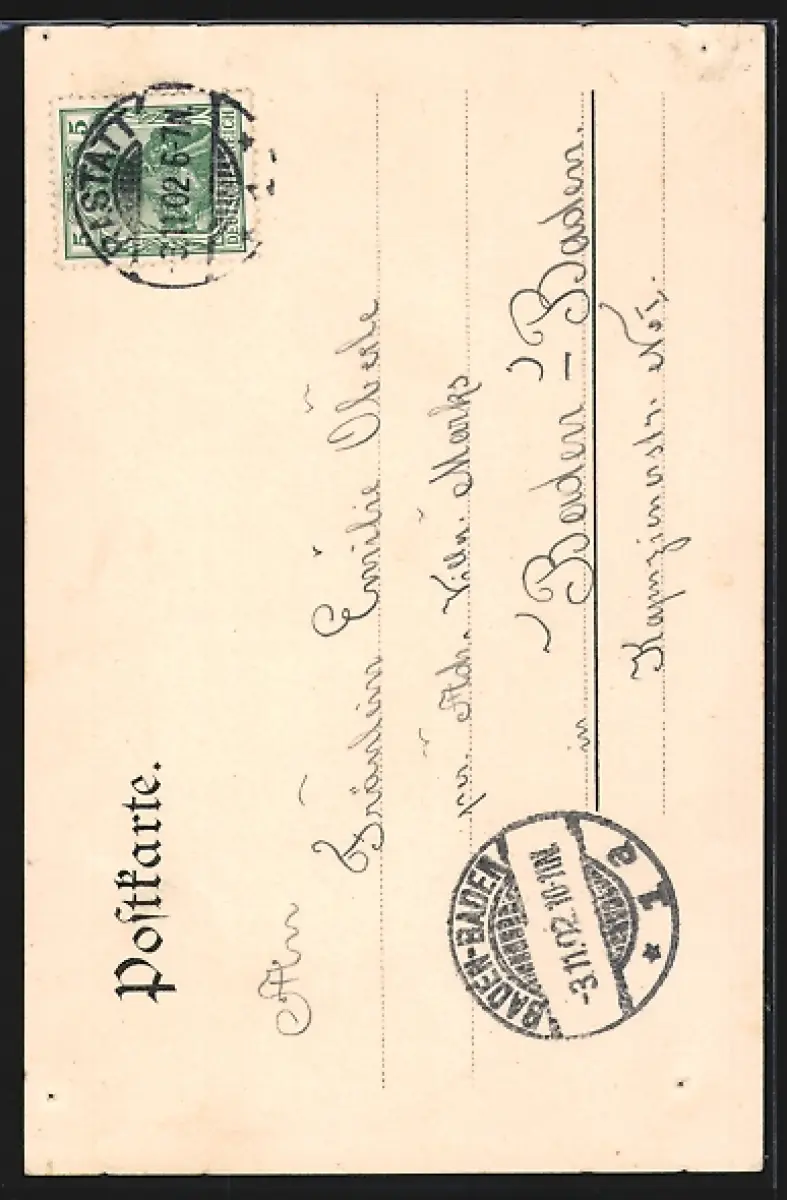 Postkarte.
5 5
DEUTSCHES REICH
RASTATT
3.11.02.6-7N.
An
Fräulein Emilie Oberle
per. Adr. Villa. Marks
in Baden – Baden.
Kapuzinerstr. No 1.
BADEN-BADEN
-3.11.02.10-11N.
* 1 a